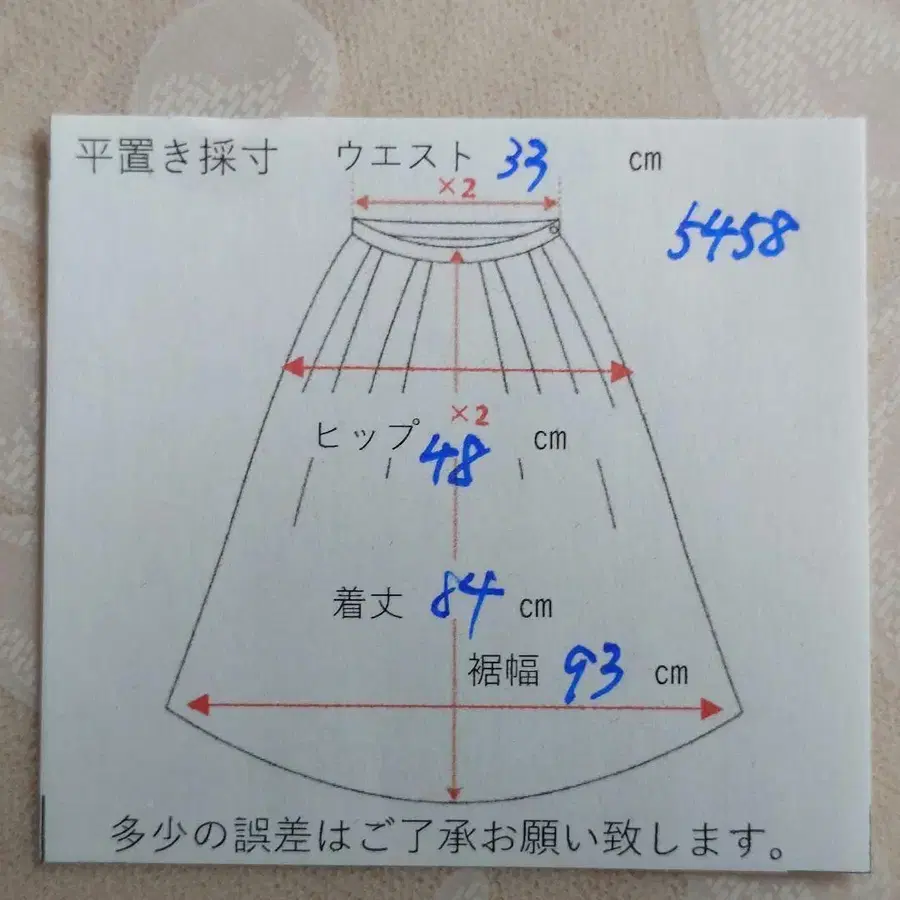 平置き採寸 ウエスト 33 cm
×2
5458
×2
ヒップ 48 cm
着丈 84 cm
裾幅 93 cm
多少の誤差はご了承お願い致します。